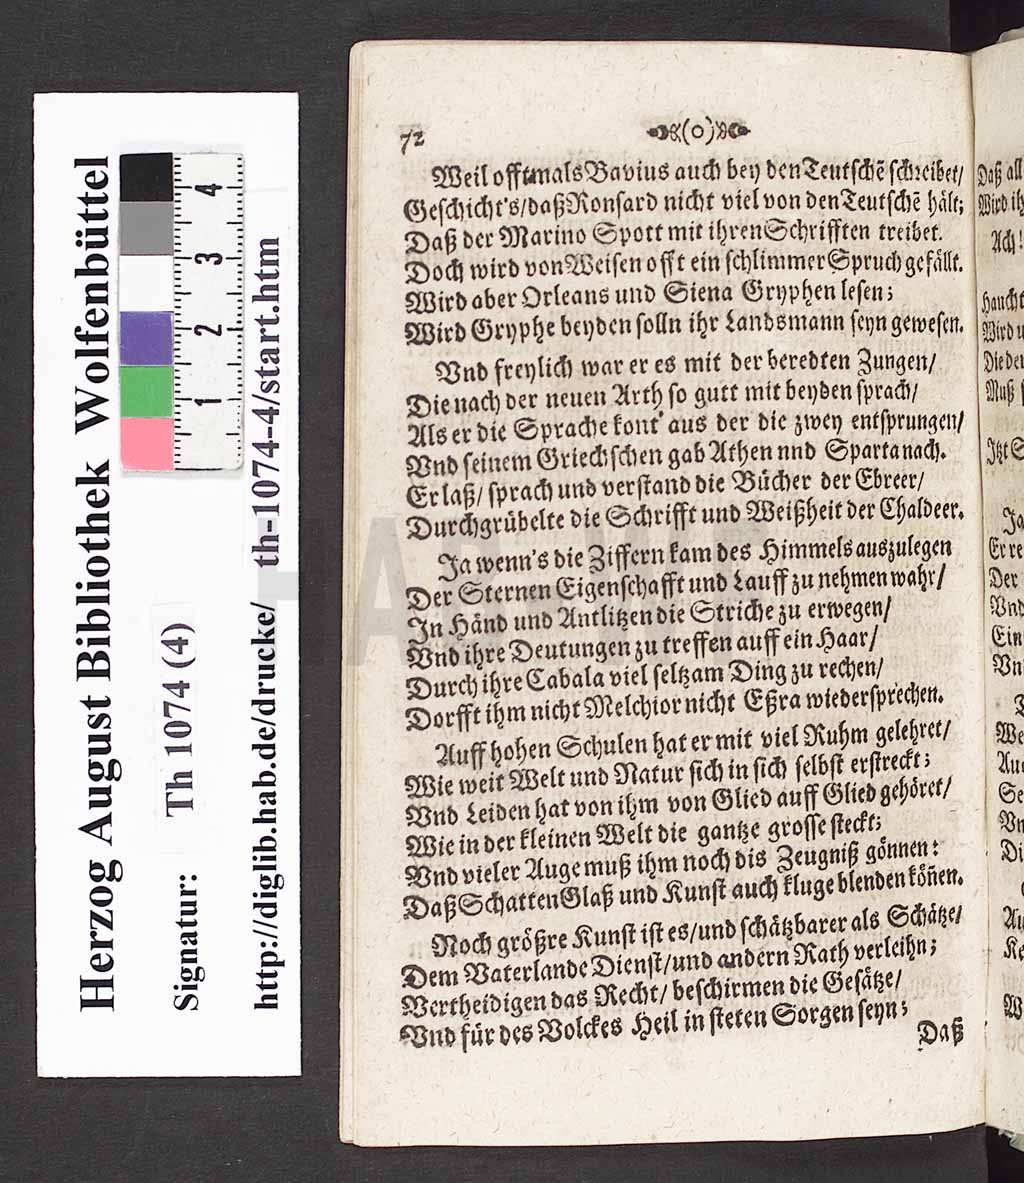 Herzog August Bibliothek Wolfenbüttel
Signatur: Th 1074 (4)
http://diglib.hab.de/drucke/ th-1074-4/start.htm
1 2 3 4
72
Weil offtmals Bavius auch bey den Teutschē schreibet/
Geschicht's/daß Ronsard nicht viel von den Teutschē hält;
Daß der Marino Spott mit ihren Schrifften treibet.
Doch wird von Weisen offt ein schlimmer Spruch gefällt.
Wird aber Orleans und Siena Gryphen lesen;
Wird Gryphe beyden solln ihr Landsmann seyn gewesen.
Vnd freylich war er es mit der beredten Zungen/
Die nach der neuen Arth so gutt mit beyden sprach/
Als er die Sprache kont' aus der die zwey entsprungen/
Vnd seinem Griechschen gab Athen nnd Sparta nach.
Er laß/ sprach und verstand die Bücher der Ebreer/
Durchgrübelte die Schrifft und Weißheit der Chaldeer.
Ja wenn's die Ziffern kam des Himmels auszulegen
Der Sternen Eigenschafft und Lauff zu nehmen wahr/
In Händ und Antlitzen die Striche zu erwegen/
Vnd ihre Deutungen zu treffen auff ein Haar/
Durch ihre Cabala viel seltzam Ding zu rechen/
Dorfft ihm nicht Melchior nicht Eßra wiedersprechen.
Auff hohen Schulen hat er mit viel Ruhm gelehret/
Wie weit Welt und Natur sich in sich selbst erstreckt;
Vnd Leiden hat von ihm von Glied auff Glied gehöret/
Wie in der kleinen Welt die gantze grosse steckt;
Vnd vieler Auge muß ihm noch dis Zeugniß gönnen:
Daß Schatten Glaß und Kunst auch kluge blenden köñen.
Noch größre Kunst ist es/und schätzbarer als Schätze/
Dem Vaterlande Dienst/und andern Rath verleihn;
Vertheidigen das Recht/ beschirmen die Gesätze/
Vnd für des Volckes Heil in steten Sorgen seyn;
Daß
Daß all
Wird ih
Ach!
Haucht
Wird u
Die de
Muß
Jtzt
Ja
Er re
Der
Vnd
Ein
Vn
We
Au
Se
Vn
Di
Au
Ke
W